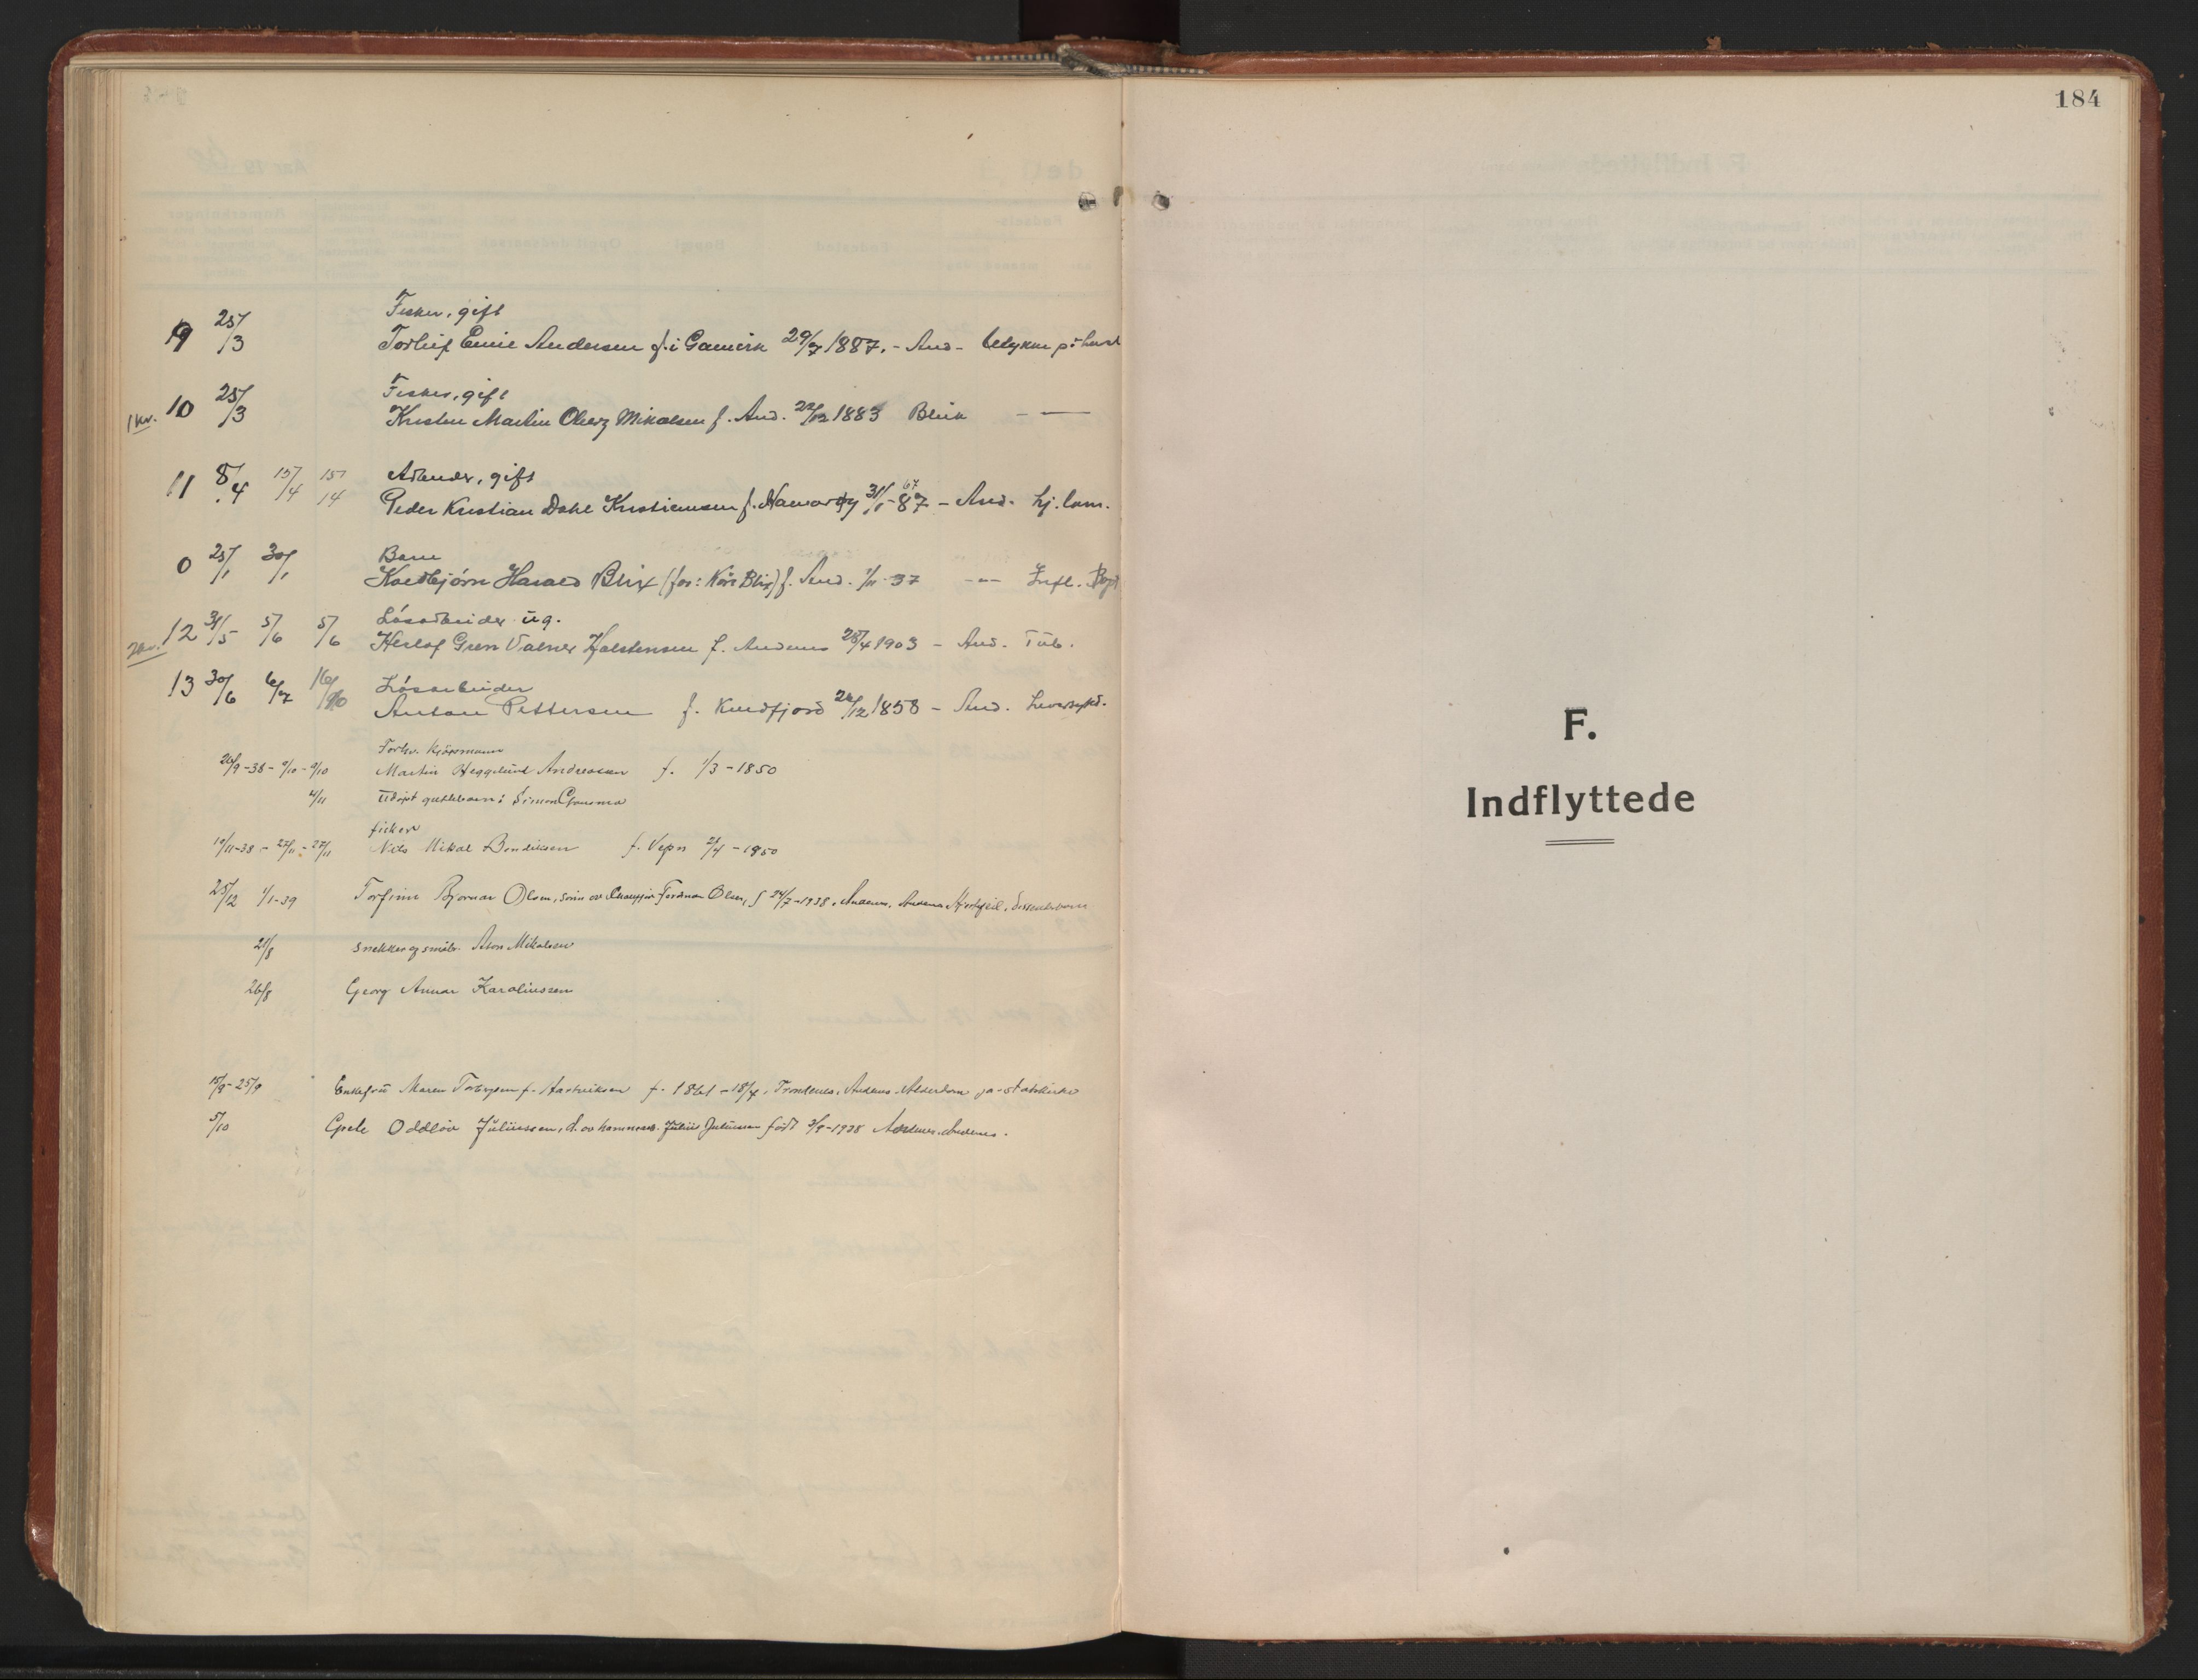 Fisker, gift
9 25/3 Torleif Emil Andersen f. i Gamvik 29/7 1887. - And-
Fisker, gift
1 kv. 10 25/3 Kristen Martin Oberg Mikalsen f. And. 22/12 1883 Bleik - —
Arbeider, gift
11 8/4 15/4 15/4 Peder Kristian Dahl Kristiansen f. Hamarøy 31/1 - 87 - And. hj. lam.
67
Barn
0 25/1 30/1 Kolbjørn Harald Blix (for: Kåre Blix) f. And. 1/11-37 -"- Infl.
Løsarbeider ug.
2 kv. 12 31/5 5/6 5/6 Herlof Gren Valner Halstensen f. Andenes 28/4 1903 - And. Tub.
Løsarbeider
13 30/6 6/7 16/10 Anton Pettersen f. Kvedfjord 24/12 1858 - And.
Forhv. Kjøpmann
26/9-38- 9/10 - 9/10 Martin Heggelund Andreassen f. 1/3 - 1850
4/11 Udøpt guttebarn: Simon
fisker
19/11-38 - 27/11 - 27/11 Nils Mikal Bendiksen f. Vefsn 2/4 - 1850
25/12 1/1-39 Torfinn Bjornar Olsen, sønn av Ferdinan Olsen, f 24/7-1938, Andenes, Andenes, Hjertefeil, Dissenterbarn
21/8 Snekker og småbr. Aron Mikalsen
26/8 Georg Annar Karoliussen
15/9 - 25/9 Enkefru Maren Torbergsen f. Hartviksen f. 1861 - 18/4, Trondenes, Andenes. Alderdom ja - statskirke
5/10 Grete Oddlöv Juliussen, d. av Julius Juliussen född 3/9-1938 Andenes, Andenes.
184
F.
Indflyttede